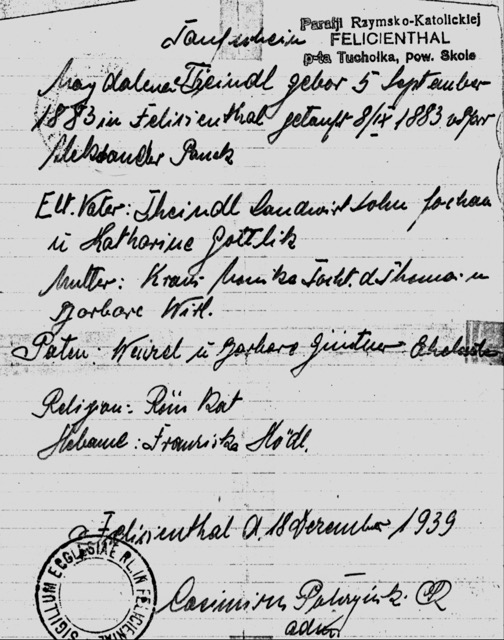 Taufschein
Parafji Rzymsko-Katolickiej
FELICIENTHAL
p-ta Tucholka, pow. Skole
Magdalena Theindl gebor 5 September
1883 in Felicienthal getauft 8/IX 1883
Aleksander Panek
Elt. Vater: Theindl Landwirt Sohn Johan
u Katharine Gottlik
Mutter: Kraus Monika Tocht. d. Thoma u
Barbara Wirl.
Paten: Wenzel u Barbara
Religion: Röm Kat
Hebame: Franziska Hödl.
Felizienthal d. 18 Dezember 1939
Casimirus
adm
SIGILLUM ECCLESIAE RL. IN FELICIENTAL